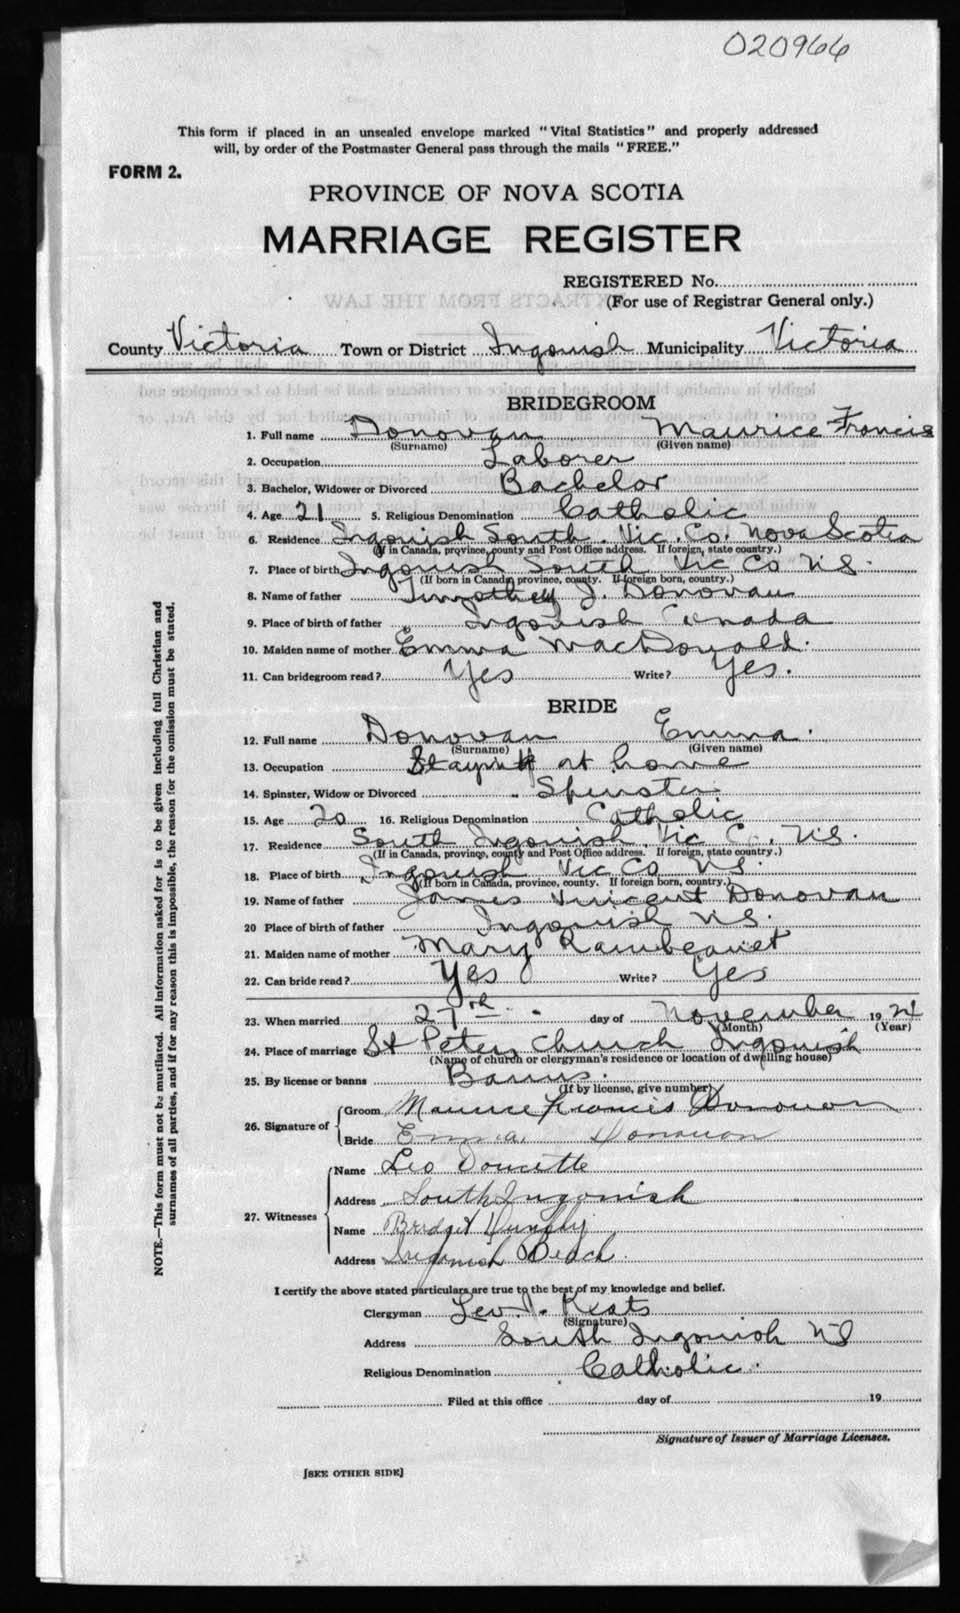 020966
This form if placed in an unsealed envelope marked "Vital Statistics" and properly addressed
will, by order of the Postmaster General pass through the mails "FREE."
FORM 2.
PROVINCE OF NOVA SCOTIA
MARRIAGE REGISTER
REGISTERED No.
(For use of Registrar General only.)
County Victoria Town or District Ingonish Municipality Victoria
BRIDEGROOM
1. Full name Donovan Maurice Francis
(Surname) (Given name)
2. Occupation Laborer
3. Bachelor, Widower or Divorced Bachelor
4. Age 21 5. Religious Denomination Catholic
6. Residence Ingonish South. Vic. Co. Nova Scotia
(If in Canada, province, county and Post Office address. If foreign, state country.)
7. Place of birth Ingonish South Vic Co N.S.
(If born in Canada, province, county. If foreign born, country.)
8. Name of father Timothy J. Donovan
9. Place of birth of father Ingonish Canada
10. Maiden name of mother Emma MacDonald.
11. Can bridegroom read? Yes Write? Yes.
BRIDE
12. Full name Donovan Emma.
(Surname) (Given name)
13. Occupation at home
14. Spinster, Widow or Divorced Spinster
15. Age 20 16. Religious Denomination Catholic
17. Residence South Ingonish, Vic Co. N.S.
(If in Canada, province, county and Post Office address. If foreign, state country.)
18. Place of birth Ingonish Vic Co N.S.
(If born in Canada, province, county. If foreign born, country.)
19. Name of father James Vincent Donovan
20 Place of birth of father Ingonish N.S.
21. Maiden name of mother Mary
22. Can bride read? Yes Write? Yes
23. When married 27th day of November 192
(Month) (Year)
24. Place of marriage St Peters Church Ingonish
(Name of church or clergyman's residence or location of dwelling house)
25. By license or banns Banns.
(If by license, give number)
26. Signature of
Groom Maurice Francis Donovan
Bride Emma Donovan
27. Witnesses
Name Leo Doucette
Address South Ingonish
Name Bridget
Address Ingonish Beach.
I certify the above stated particulars are true to the best of my knowledge and belief.
Clergyman Leo. J. Keats
(Signature)
Address South Ingonish NS
Religious Denomination Catholic.
Filed at this office day of 19
Signature of Issuer of Marriage Licenses.
[SEE OTHER SIDE]
NOTE.—This form must not be mutilated. All information asked for is to be given including full Christian and
surnames of all parties, and if for any reason this is impossible, the reason for the omission must be stated.